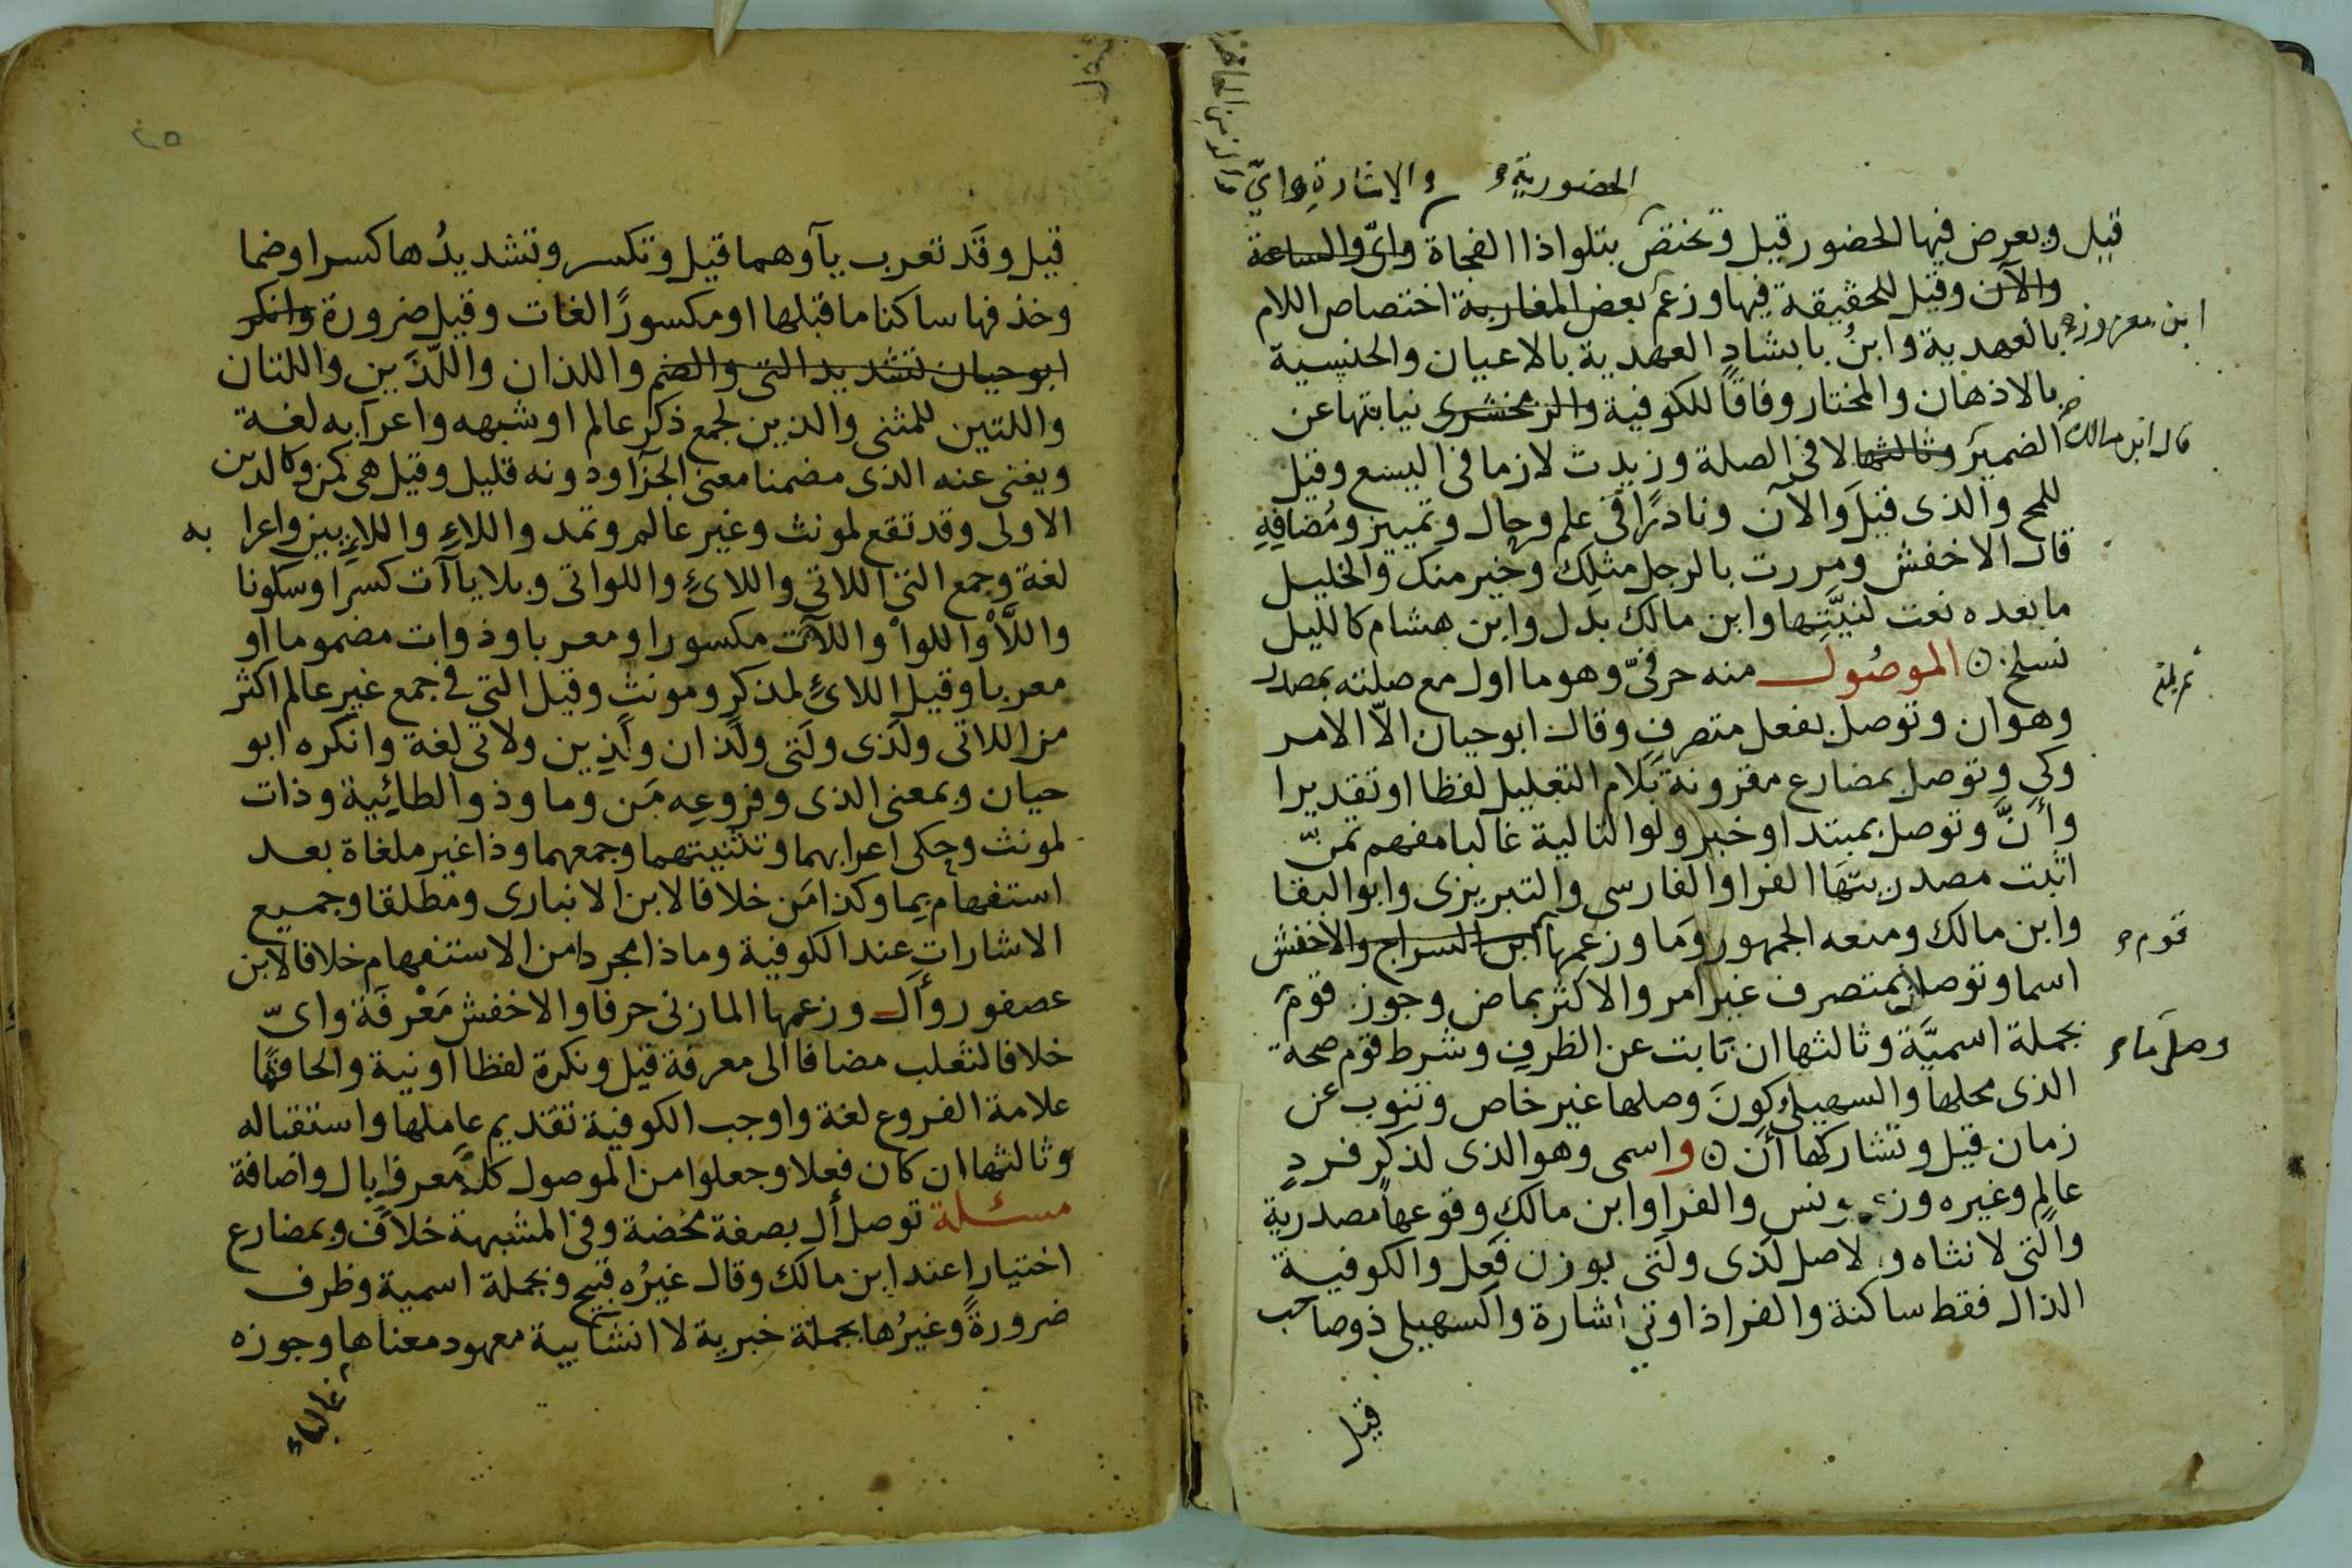 الحضورية والاشارة واي
قبل ويعرض فيها الحضور قيل وتختص بتلو اذا الفجاة واى والساعة
والآن وقيل للحقيقة فيها وزعم بعض المغاربة اختصاص اللام
ابن معزوز
بالعهدية وابن بابشاد العهدية بالاعيان والجنسية
بالاذهان والمختار وفاقا للكوفية والزمخشرى نيابتها عن
قال ابن مالك
الضمير وثالثها لا فى الصلة وزيدت لازما فى اليسع وقيل
للمح والذى قيل والآن ونادرا فى علم وحال وتمييز ومضافه
قال الاخفش ومررت بالرجل مثلك وخير منك والخليل
ما بعده نعت لنيتها وابن مالك بدل وابن هشام كالليل
نسلخ الموصول منه حرفى وهو ما اول مع صلته بمصدر
وهو ان وتوصل بفعل متصرف وقال ابو حيان الا الامر
وكى وتوصل بمضارع مقرونة بلام التعليل لفظا او تقديرا
وأنّ وتوصل بمبتدا وخبر ولو التالية غالبا مفهم تمنّ
اثبت مصدريتها الفرا والفارسى والتبريزى وابو البقا
وابن مالك ومنعه الجمهور وما وزعمها ابن السراج والاخفش
قوم
اسما وتوصل بمتصرف غير امر والاكثر بماض وجوز قوم
بجملة اسمية وثالثها ان نابت عن الظرف وشرط قوم صحة
وصل ما
الذى محلها والسهيلى كون وصلها غير خاص وتنوب عن
زمان قيل وتشاركها أن واسمى وهو الذى لذكر فرد
عالم وغيره وزعم يونس والفرا وابن مالك وقوعها مصدرية
والتى لانثاه والاصل لذى ولتى بوزن فعل والكوفية
الذال فقط ساكنة والفرا ذا وتى اشارة والسهيلى ذو صاحب
قيل
قيل وقد تعرب يآوهما قيل وتكسر وتشديدها كسرا وضما
وحذفها ساكنا ما قبلها او مكسورا لغات وقيل ضرورة وانكر
ابو حيان تشديد التى والضم واللذان واللذين واللتان
واللتين للمثنى والذين لجمع ذكر عالم او شبهه واعرابه لغة
ويغنى عنه الذى مضمنا معنى الجزا ودونه قليل وقيل هى كمن وكالذين
الاولى وقد تقع لمونث وغير عالم وتمد واللاء واللائين واعرابه
لغة وجمع التى اللاتى واللائى واللواتى وبلا ياآت كسرا وسكونا
واللا واللوا واللآت مكسورا ومعربا وذوات مضموما او
معربا وقيل اللائى لمذكر ومونث وقيل التى فى جمع غير عالم اكثر
من اللاتى ولذى ولتى ولذان ولذين ولاتى لغة وانكره ابو
حيان وبمعنى الذى وفروعه من وما وذو الطائية وذات
لمونث وحكى اعرابهما وتثنيتهما وجمعهما وذا غير ملغاة بعد
استفهام بما وكذا من خلافا لابن الانبارى ومطلقا وجميع
الاشارات عند الكوفية وماذا مجردا من الاستفهام خلافا لابن
عصفور وأل وزعمها المازنى حرفا والاخفش معرفة واىّ
خلافا لثعلب مضافا الى معرفة قيل ونكرة لفظا او نية والحاقها
علامة الفروع لغة واوجب الكوفية تقديم عاملها واستقباله
وثالثها ان كان فعلا وجعلوا من الموصول كل معرف بال واضافة
مسئلة توصل أل بصفة محضة وفى المشبهة خلاف وبمضارع
اختيارا عند ابن مالك وقال غيره قبيح وبجملة اسمية وظرف
ضرورة وغيرها بجملة خبرية لا انشايية معهود معناها وجوزه
غالبا